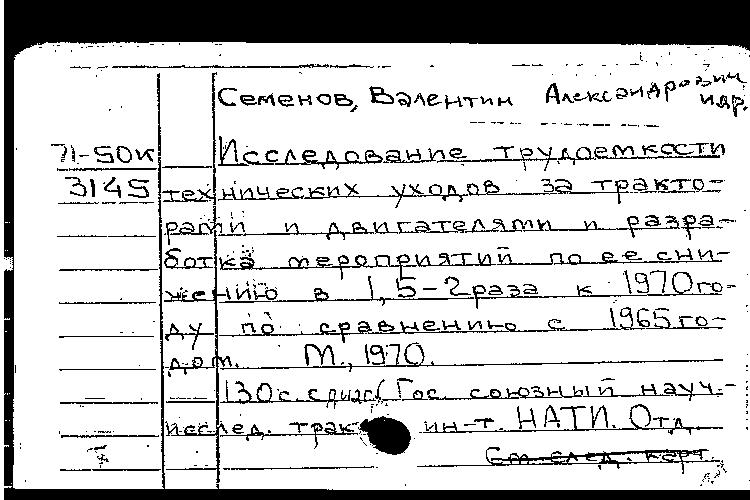 Семенов, Валентин Александрович
и др.
71-50к
Исследование трудоемкости
3145
технических уходов за тракто-
рами и двигателями и разра-
ботка мероприятий по ее сни-
жению в 1,5-2 раза к 1970 го-
ду по сравнению с 1965 го-
дом. М., 1970.
130 с. с диагр. (Гос. союзный науч.-
исслед. трак ин-т. НАТИ. Отд.
См. след. карт.